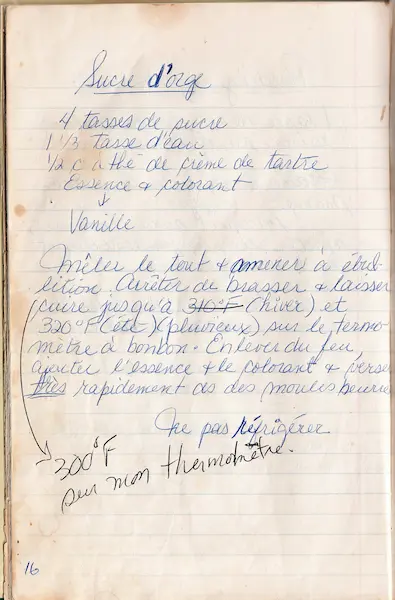 Sucre d'orge
4 tasses de sucre
1 1/3 tasse d'eau
1/2 c à thé de crème de tartre
Essence & colorant
↓
Vanille
Mêler le tout & amener à ébul-
lition. Arrêter de brasser & laisser
cuire jusqu'à 310°F (hiver) et
320°F (été) (pluvieux) sur le termo-
mètre à bonbon. Enlever du feu,
ajouter l'essence & le colorant & verser
très rapidement ds des moules beurrés
Ne pas réfrigérer
300°F
sur mon thermomètre.
16